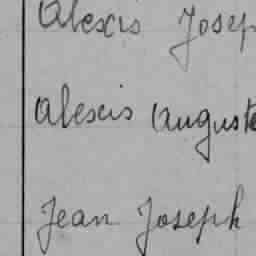 Alexis Josep
Alexis Auguste
Jean Joseph